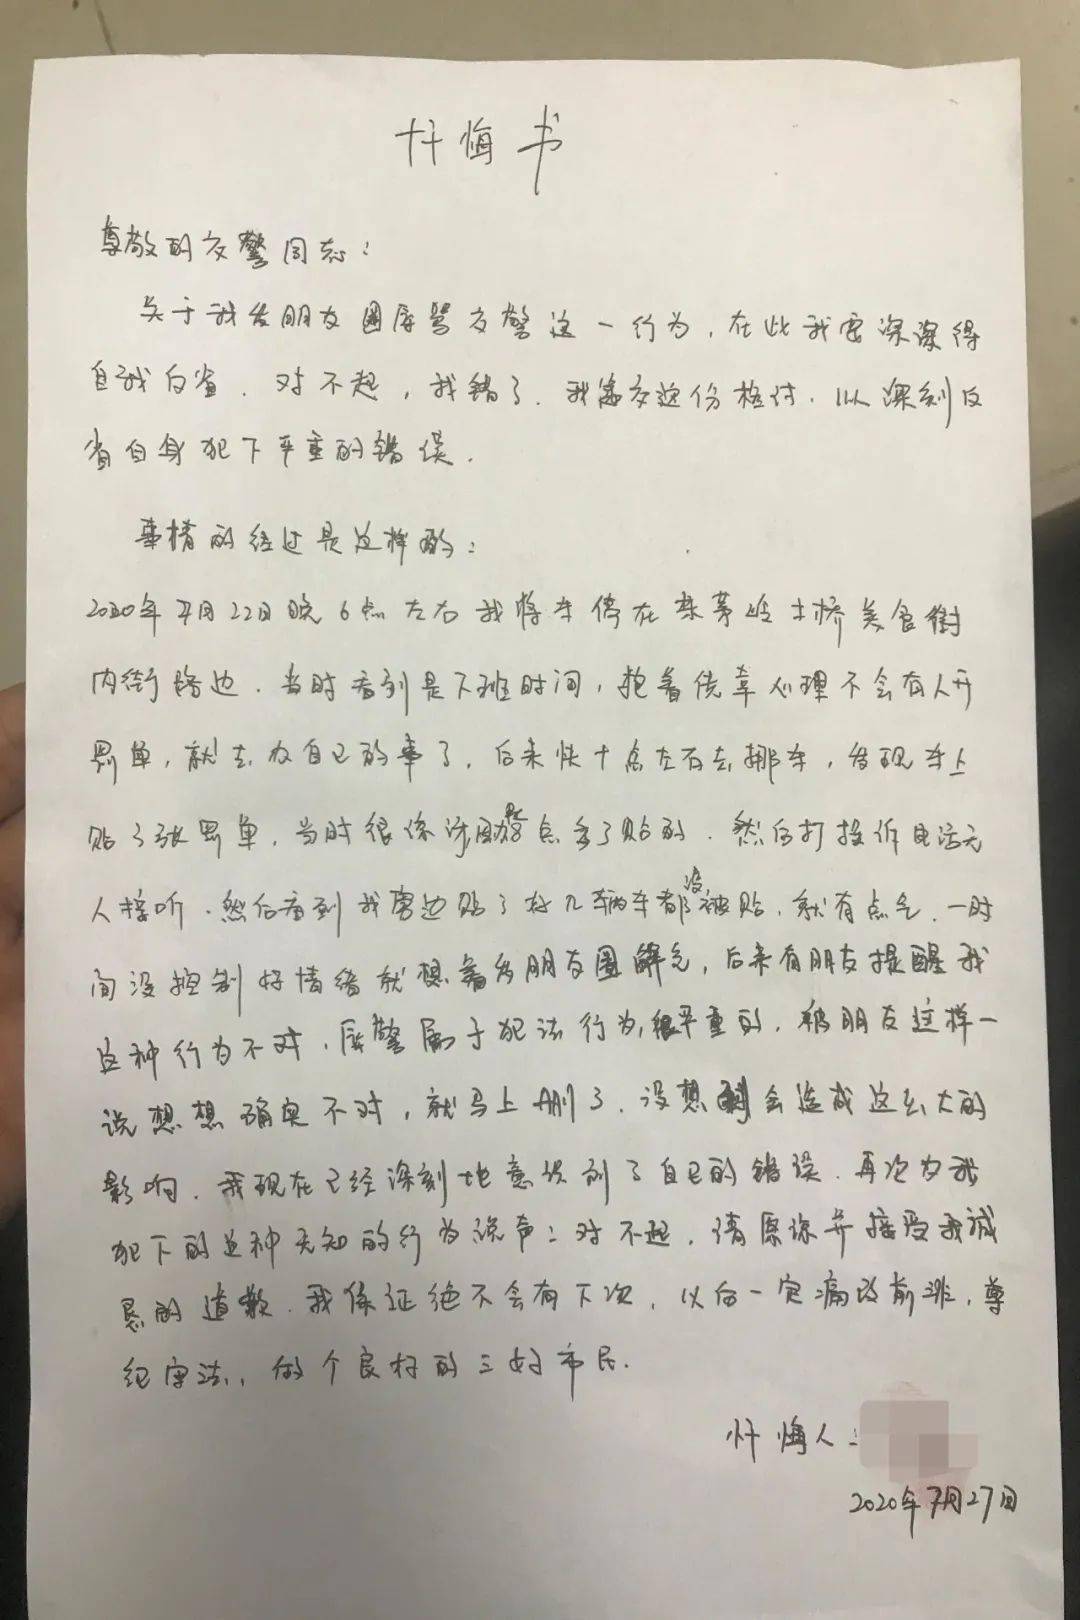 忏悔书
尊敬的交警同志：
关于我发朋友圈辱骂交警这一行为，在此我要深深得
自我自省．对不起，我错了．我递交这份检讨．以深刻反
省自身犯下严重的错误．
事情的经过是这样的：
2020年7月22日晚6点左右我将车停在 土桥美食街
内街路边．当时看到是下班时间，抱着侥幸心理不会有人开
罚单，就去办自己的事了．后来快十点左右去挪车，发现车上
贴了张罚单，当时很 点多了贴的．然后打投诉电话无
人接听．然后看到我旁边贴了好几辆车都没被贴．就有点气．一时
间没控制好情绪就想着发朋友圈解气，后来有朋友提醒我
这种行为不对，辱警属于犯法行为，很严重的，被朋友这样一
说想想确实不对，就马上删了．没想到会造成这么大的
影响．我现在已经深刻地意识到了自己的错误．再次为我
犯下的这种无知的行为说声：对不起．请原谅并接受我诚
恳的道歉．我保证绝不会有下次，以后一定痛改前非，尊
纪守法，做个良好的三好市民．
忏悔人：
2020年7月27日